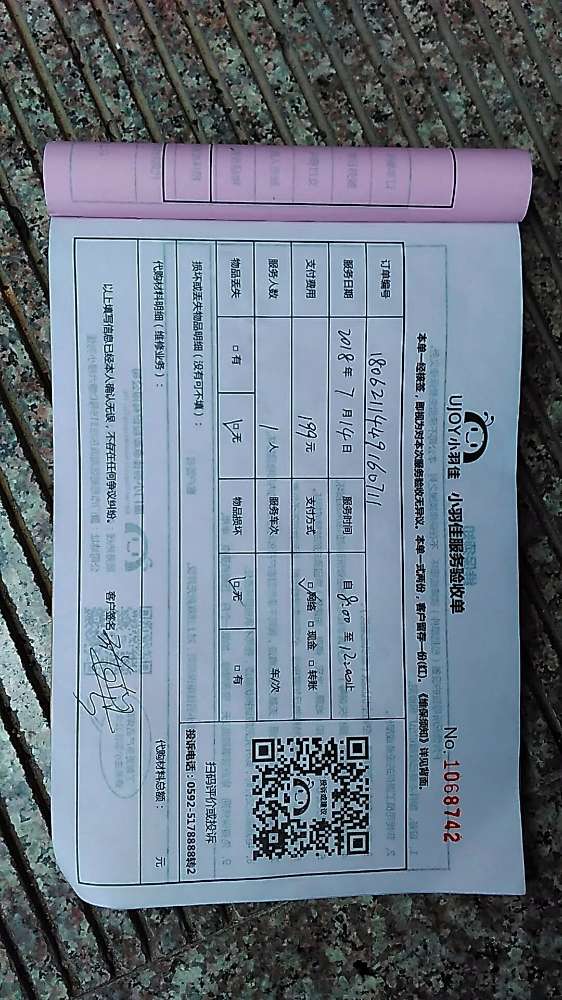 UJOY小羽佳 小羽佳服务验收单
No. 1068742
本单一经接签，即视为对本次服务验收无异议。本单一式两份，客户留存一份(红)。《维保须知》详见背面。
订单编号 180621144916071
服务日期 2018年7月14日 服务时间 自8:00至12:00止
支付费用 199元 支付方式 ☑网络 □现金 □转账
服务人数 1人 服务车次 车/次
物品丢失 □有 ☑无 物品损坏 ☑无 □有
投诉或建议
扫码评价或投诉
投诉电话：0592-5178888转2
损坏或丢失物品明细（没有可不填）：
代购材料明细（维修业务）： 代购材料总额： 元
以上填写信息已经本人确认无误，不存在任何争议纠纷。 客户签名